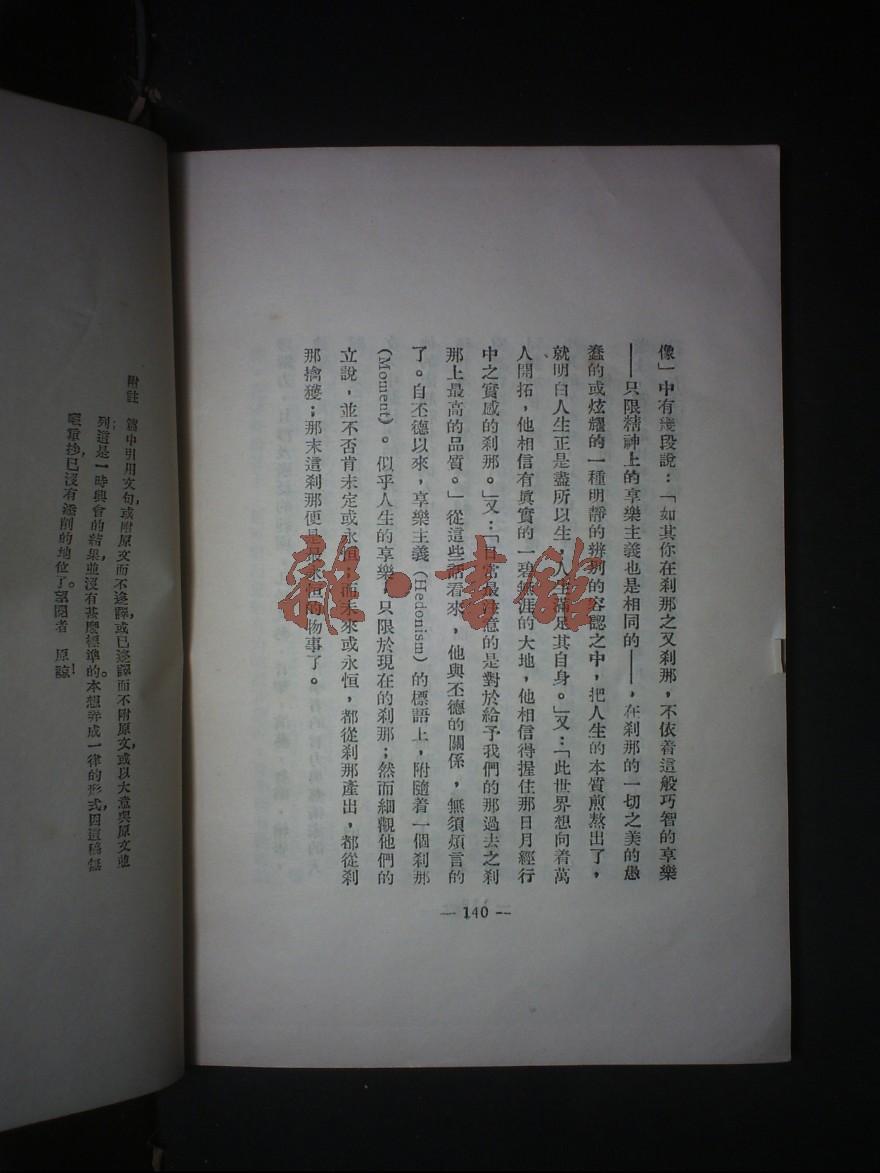 像」中有幾段說：「如其你在刹那之又刹那，不依着這般巧智的享樂
——只限精神上的享樂主義也是相同的——，在刹那的一切之美的愚
蠢的或炫耀的一種明靜的辨別的容認之中，把人生的本質煎熬出了，
就明白人生正是盡所以生；人生滿足其自身。」又：「此世界想向着萬
人開拓，他相信有眞實的一碧無涯的大地，他相信得握住那日月經行
中之實感的刹那。」又：「自當最注意的是對於給予我們的那過去之刹
那上最高的品質。」從這些話看來，他與丕德的關係，無須煩言的
了。自丕德以來，享樂主義 (Hedonism) 的標語上，附隨着一個刹那
(Moment)。似乎人生的享樂，只限於現在的刹那；然而細觀他們的
立說，並不否肯未定或永恒，而未來或永恒，都從刹那產出，都從刹
那擒獲；那末這刹那便是最永恒的物事了。
— 140 —
附註：篇中引用文句，或附原文而不迻譯，或已迻譯而不附原文，或以大意與原文並
列，這是一時興會的結果，並沒有甚麼標準的。本想弄成一律的形式，因這稿無
重抄，已沒有添削的地位了。望閱者　原諒！
雜·書館